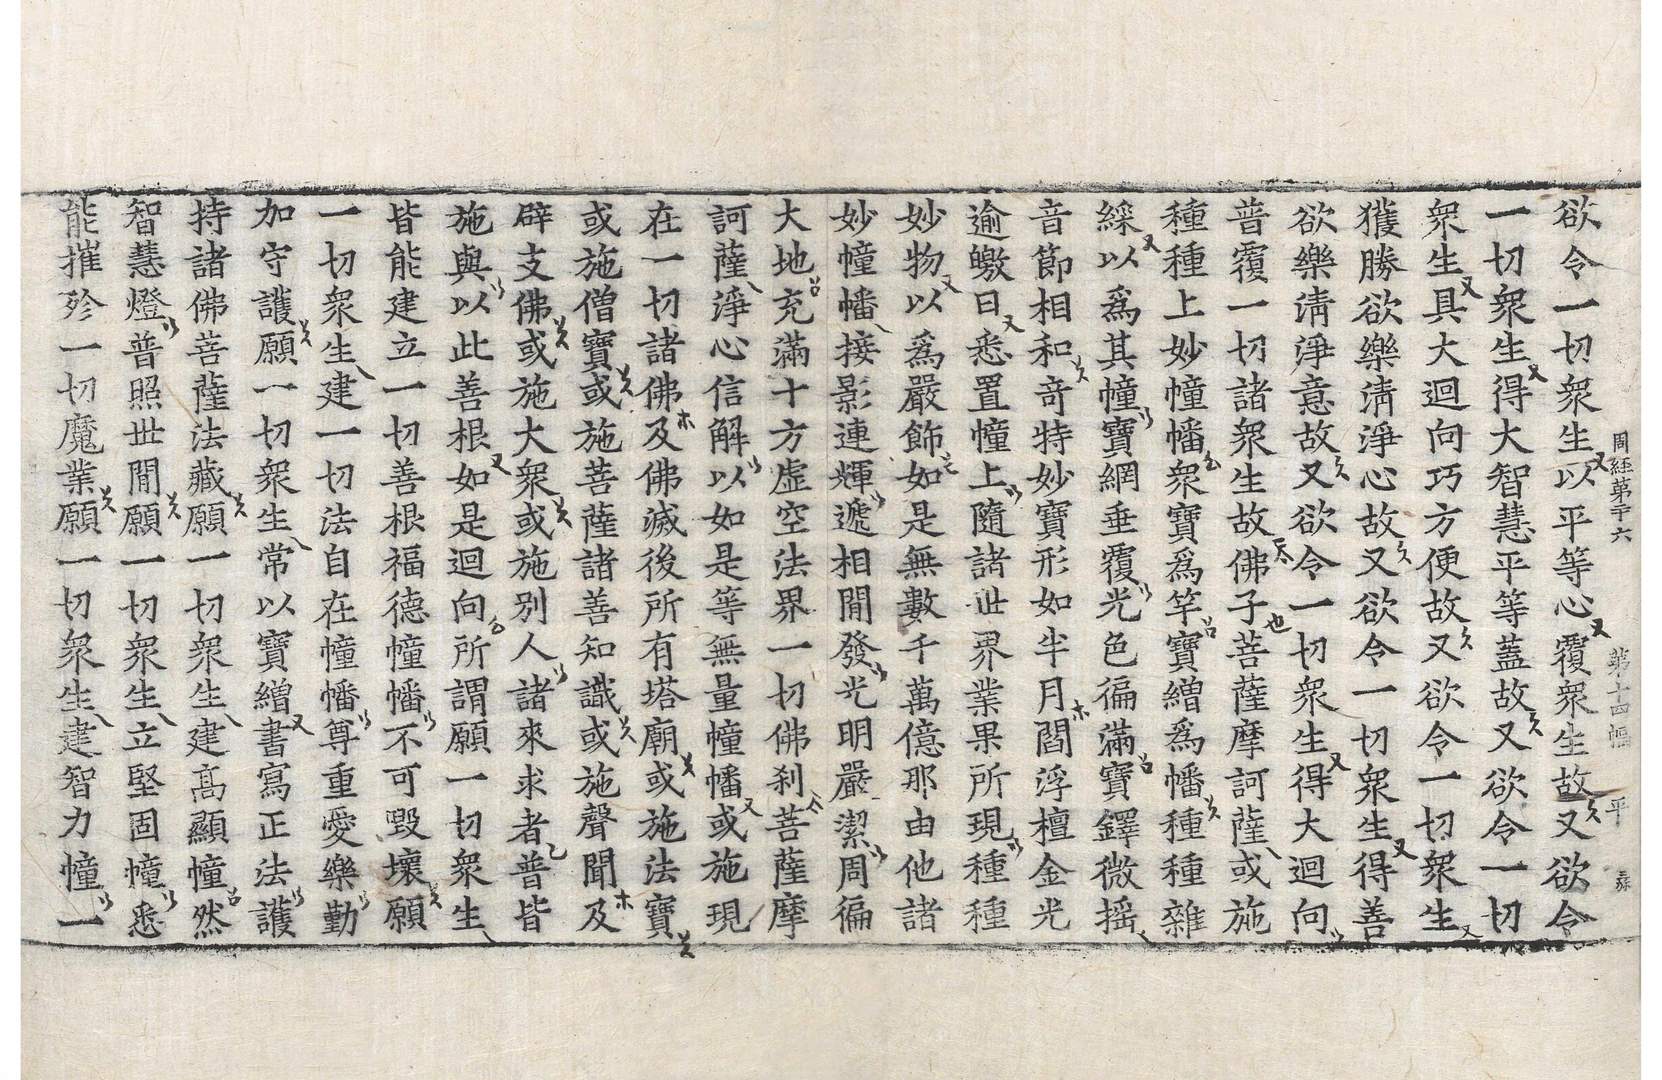 周経第二十六　第十四幅　平
欲令一切衆生以平等心覆衆生故又欲令
一切衆生得大智慧平等蓋故又欲令一切
衆生具大迴向巧方便故又欲令一切衆生
獲勝欲樂淸淨心故又欲令一切衆生得善
欲樂淸淨意故又欲令一切衆生得大迴向
普覆一切諸衆生故佛子菩薩摩訶薩或施
種種上妙幢幡衆寶爲竿寶繒爲幡種種雜
綵以爲其幢寶網垂覆光色徧滿寶鐸微搖
音節相和奇特妙寶形如半月閻浮檀金光
逾曒日悉置幢上隨諸世界業果所現種種
妙物以爲嚴飾如是無數千萬億那由他諸
妙幢幡接影連輝遞相間發光明嚴潔周徧
大地充滿十方虛空法界一切佛刹菩薩摩
訶薩淨心信解以如是等無量幢幡或施現
在一切諸佛及佛滅後所有塔廟或施法寶
或施僧寶或施菩薩諸善知識或施聲聞及
辟支佛或施大衆或施別人諸來求者普皆
施與以此善根如是迴向所謂願一切衆生
皆能建立一切善根福德幢幡不可毀壞願
一切衆生建一切法自在幢幡尊重愛樂勤
加守護願一切衆生常以寶繒書寫正法護
持諸佛菩薩法藏願一切衆生建高顯幢然
智慧燈普照世間願一切衆生立堅固幢悉
能摧殄一切魔業願一切衆生建智力幢一